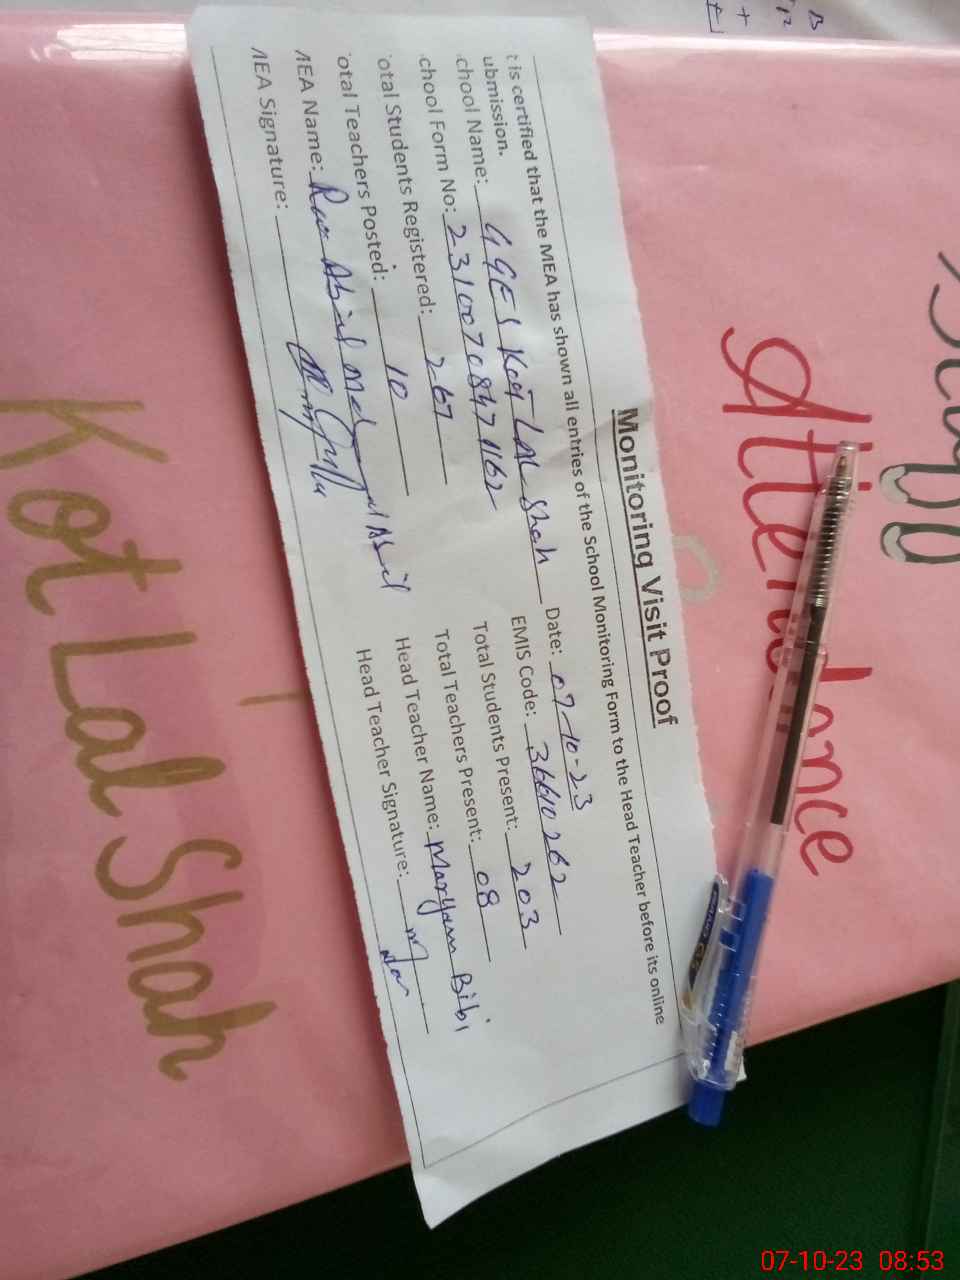 Monitoring Visit Proof
t is certified that the MEA has shown all entries of the School Monitoring Form to the Head Teacher before its online
ubmission.
Date: 07-10-23
chool Name: GGES Kot LAL Shah
EMIS Code: 36610262
chool Form No: 23100708471162
Total Students Present: 203
otal Students Registered: 267
Total Teachers Present: 08
otal Teachers Posted: 10
Head Teacher Name: Maryam Bibi
MEA Name: Rao
Head Teacher Signature:
MEA Signature:
Attendance
Kot Lal Shah
07-10-23 08:53